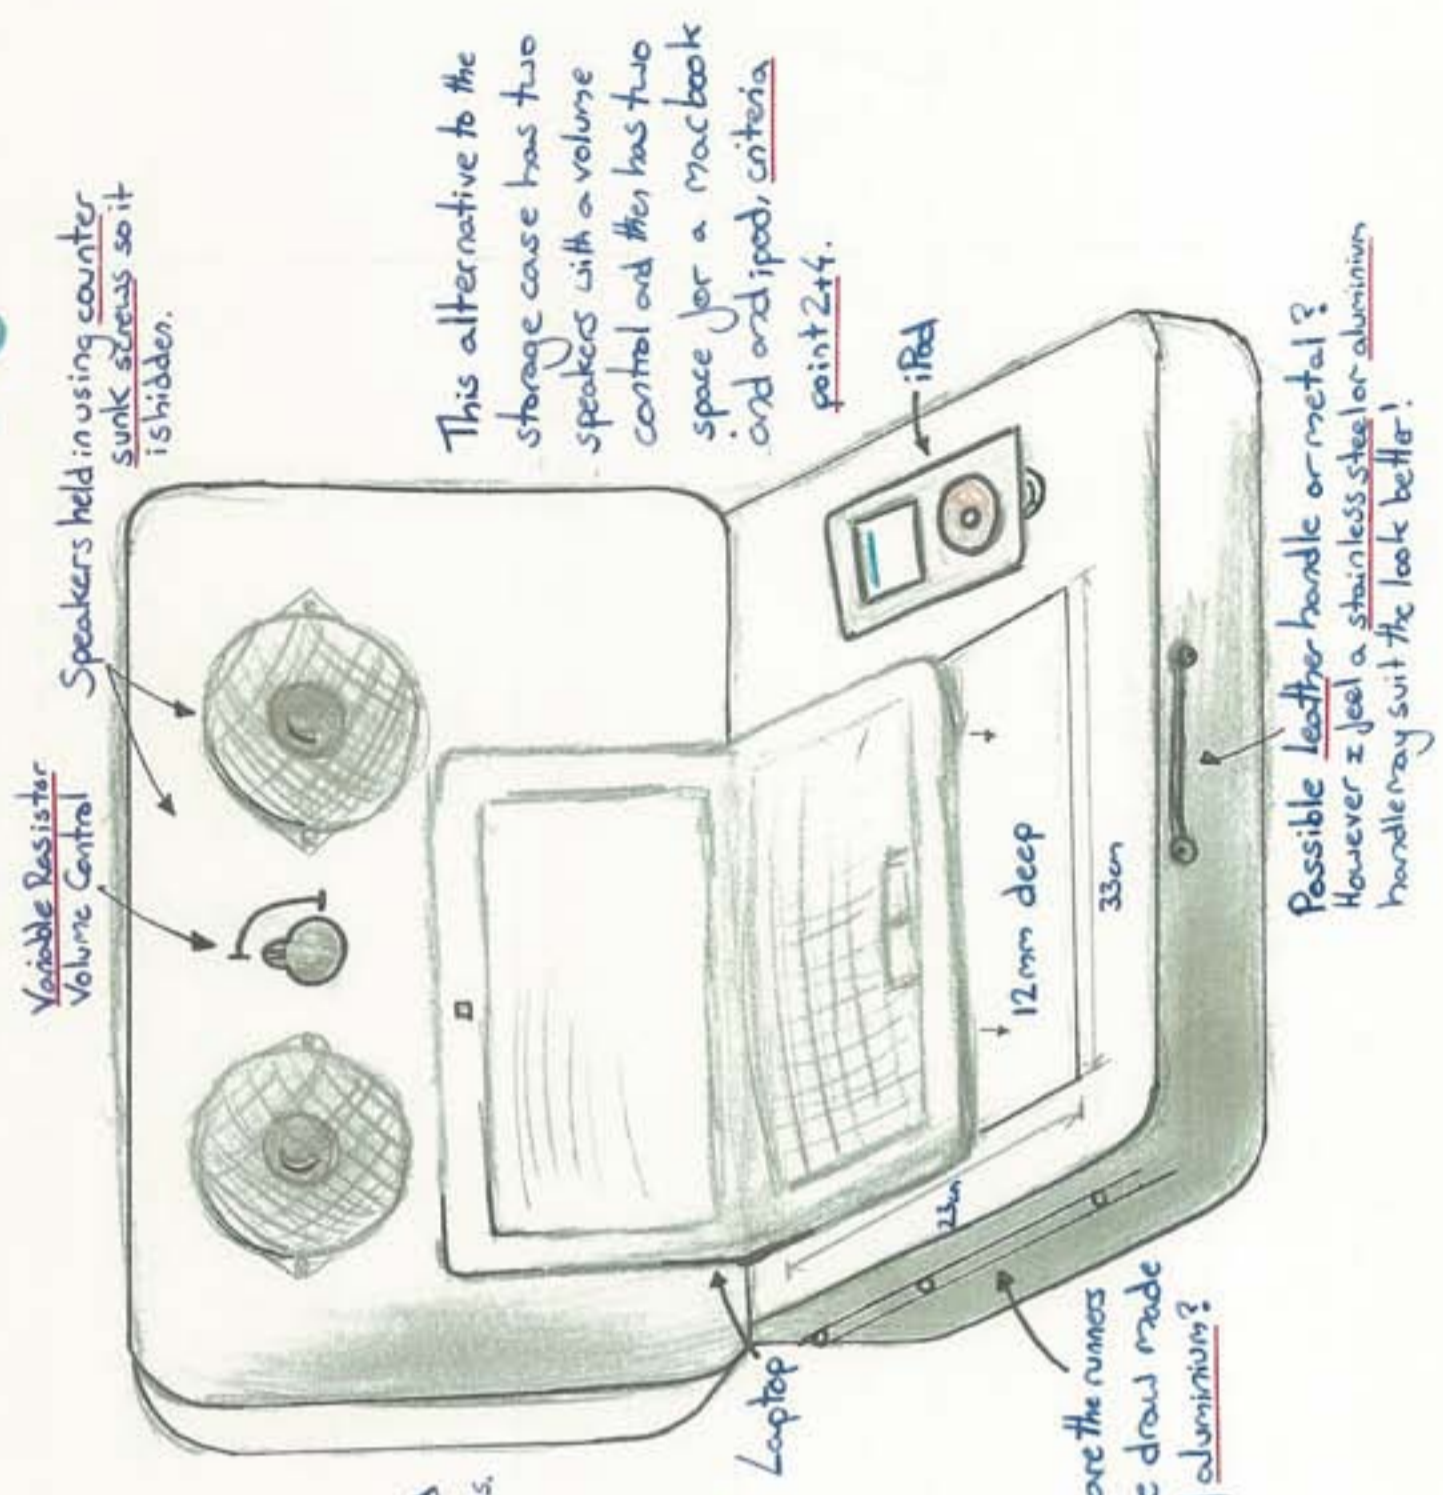 Speakers held in using counter
sunk screws so it
is hidden.
Variable Resistor
Volume Control
This alternative to the
storage case has two
speakers with a volume
control and then has two
space for a macbook
and and ipod, criteria
point 2+4.
iPod
12mm deep
33cm
23cm
Laptop
Possible Leather handle or metal?
However I feel a stainless steel or aluminium
handle may suit the look better!
are the runners
draw made
aluminium?
s.